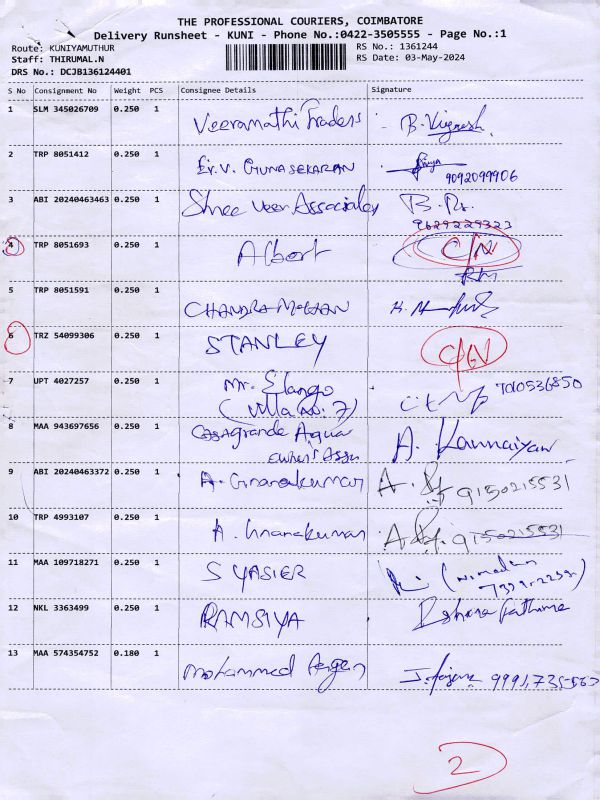 THE PROFESSIONAL COURIERS, COIMBATORE
Delivery Runsheet - KUNI - Phone No.:0422-3505555 - Page No.:1
Route: KUNIYAMUTHUR RS No.: 1361244
Staff: THIRUMAL.N RS Date: 03-May-2024
DRS No.: DCJB136124401
S No Consignment No Weight PCS Consignee Details Signature
1 SLM 345026709 0.250 1 Veeramathi Traders B. Vignesh
2 TRP 8051412 0.250 1 Er.V. GUNASEKARAN
9092099906
3 ABI 20240463463 0.250 1 Shree Veer Associates
9629229323
4 TRP 8051693 0.250 1 Albert C/N
5 TRP 8051591 0.250 1 CHANDRAMOHAN
6 TRZ 54099306 0.250 1 STANLEY
7 UPT 4027257 0.250 1 Mr. Elango 7010536850
(Villa No: 7)
8 MAA 943697656 0.250 1 Casagrande Aqua A. Kannaiyan
owner's Assn
9 ABI 20240463372 0.250 1 A. Gnanakumar 9150215531
10 TRP 4993107 0.250 1 A. Gnanakumar 9150215531
11 MAA 109718271 0.250 1 S YASIER
12 NKL 3363499 0.250 1 RAMSIYA
13 MAA 574354752 0.180 1 Mohammed
2